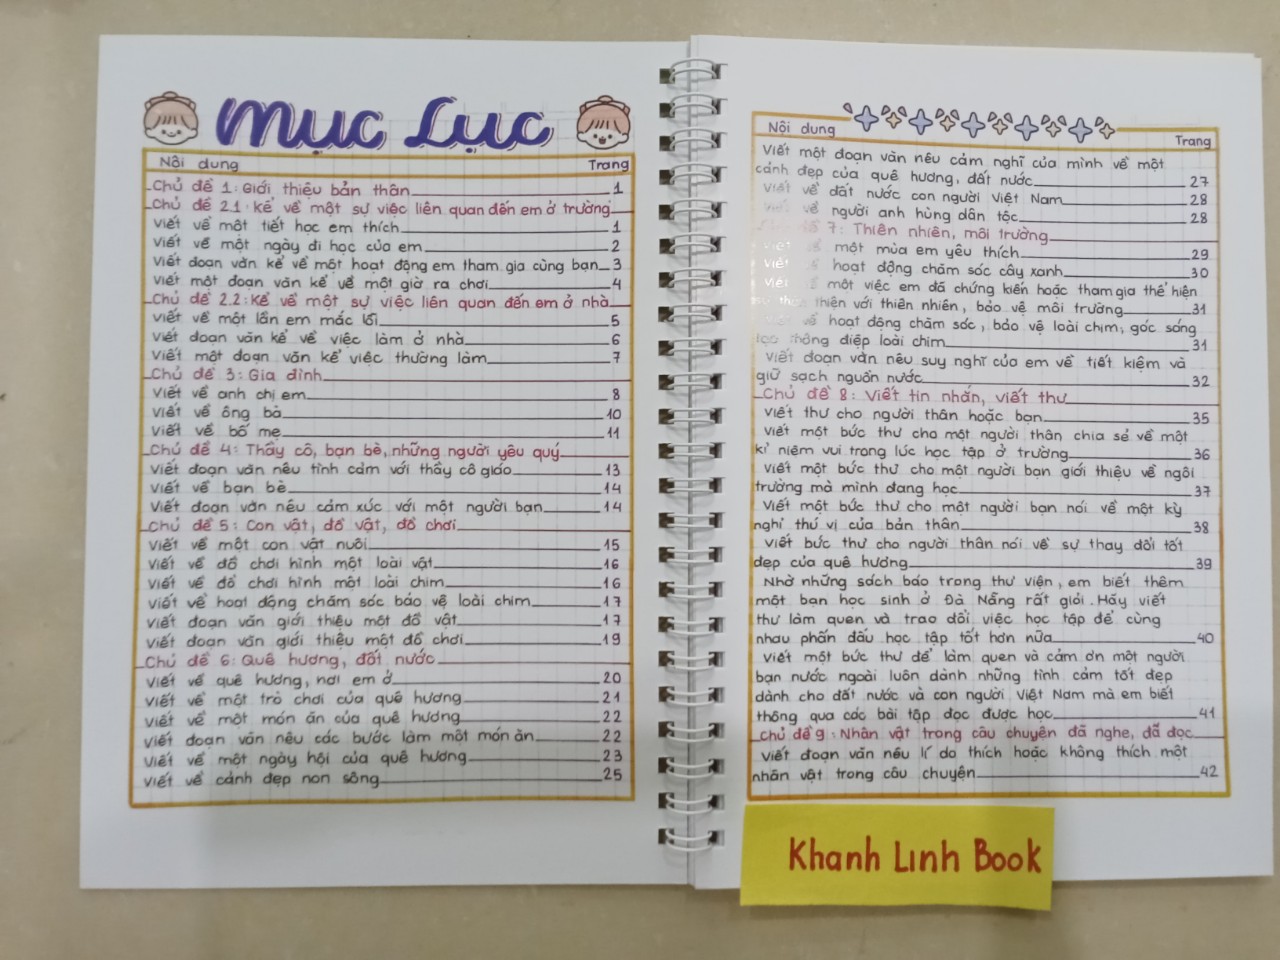 Mục Lục
Nội dung Trang
Chủ đề 1: Giới thiệu bản thân 1
Chủ đề 2.1: kể về một sự việc liên quan đến em ở trường
Viết về một tiết học em thích 1
Viết về một ngày đi học của em 2
Viết đoạn văn kể về một hoạt động em tham gia cùng bạn 3
Viết một đoạn văn kể về một giờ ra chơi 4
Chủ đề 2.2: Kể về một sự việc liên quan đến em ở nhà
Viết về một lần em mắc lỗi 5
Viết đoạn văn kể về việc làm ở nhà 6
Viết một đoạn văn kể việc thường làm 7
Chủ đề 3: Gia đình
Viết về anh chị em 8
Viết về ông bà 10
Viết về bố mẹ 11
Chủ đề 4: Thầy cô, bạn bè, những người yêu quý
Viết đoạn văn nêu tình cảm với thầy cô giáo 13
Viết về bạn bè 14
Viết đoạn văn nêu cảm xúc với một người bạn 14
Chủ đề 5: Con vật, đồ vật, đồ chơi
Viết về một con vật nuôi 15
Viết về đồ chơi hình một loài vật 16
Viết về đồ chơi hình một loài chim 16
Viết về hoạt động chăm sóc bảo vệ loài chim 17
Viết đoạn văn giới thiệu một đồ vật 17
Viết đoạn văn giới thiệu một đồ chơi 19
Chủ đề 6: Quê hương, đất nước
Viết về quê hương, nơi em ở 20
Viết về một trò chơi của quê hương 21
Viết về một món ăn của quê hương 22
Viết đoạn văn nêu các bước làm một món ăn 22
Viết về một ngày hội của quê hương 23
Viết về cảnh đẹp non sông 25
Nội dung Trang
Viết một đoạn văn nêu cảm nghĩ của mình về một
cảnh đẹp của quê hương, đất nước 27
Viết về đất nước con người Việt Nam 28
về người anh hùng dân tộc 28
7: Thiên nhiên, môi trường
một mùa em yêu thích 29
Viết hoạt động chăm sóc cây xanh 30
một việc em đã chứng kiến hoặc tham gia thể hiện
thiện với thiên nhiên, bảo vệ môi trường 31
hoạt động chăm sóc, bảo vệ loài chim, góc sáng
thông điệp loài chim 31
Viết đoạn văn nêu suy nghĩ của em về tiết kiệm và
giữ sạch nguồn nước 32
Chủ đề 8: Viết tin nhắn, viết thư
Viết thư cho người thân hoặc bạn 35
Viết một bức thư cho một người thân chia sẻ về một
kỉ niệm vui trong lúc học tập ở trường 36
Viết một bức thư cho một người bạn giới thiệu về ngôi
trường mà mình đang học 37
Viết một bức thư cho một người bạn nói về một kỳ
nghỉ thú vị của bản thân 38
Viết bức thư cho người thân nói về sự thay đổi tốt
đẹp của quê hương 39
Nhờ những sách báo trong thư viện, em biết thêm
một bạn học sinh ở Đà Nẵng rất giỏi. Hãy viết
thư làm quen và trao đổi việc học tập để cùng
nhau phấn đấu học tập tốt hơn nữa 40
Viết một bức thư để làm quen và cảm ơn một người
bạn nước ngoài luôn dành những tình cảm tốt đẹp
dành cho đất nước và con người Việt Nam mà em biết
thông qua các bài tập đọc được học 41
Chủ đề 9: Nhân vật trong câu chuyện đã nghe, đã đọc
Viết đoạn văn nêu lí do thích hoặc không thích một
nhân vật trong câu chuyện 42
Khanh Linh Book